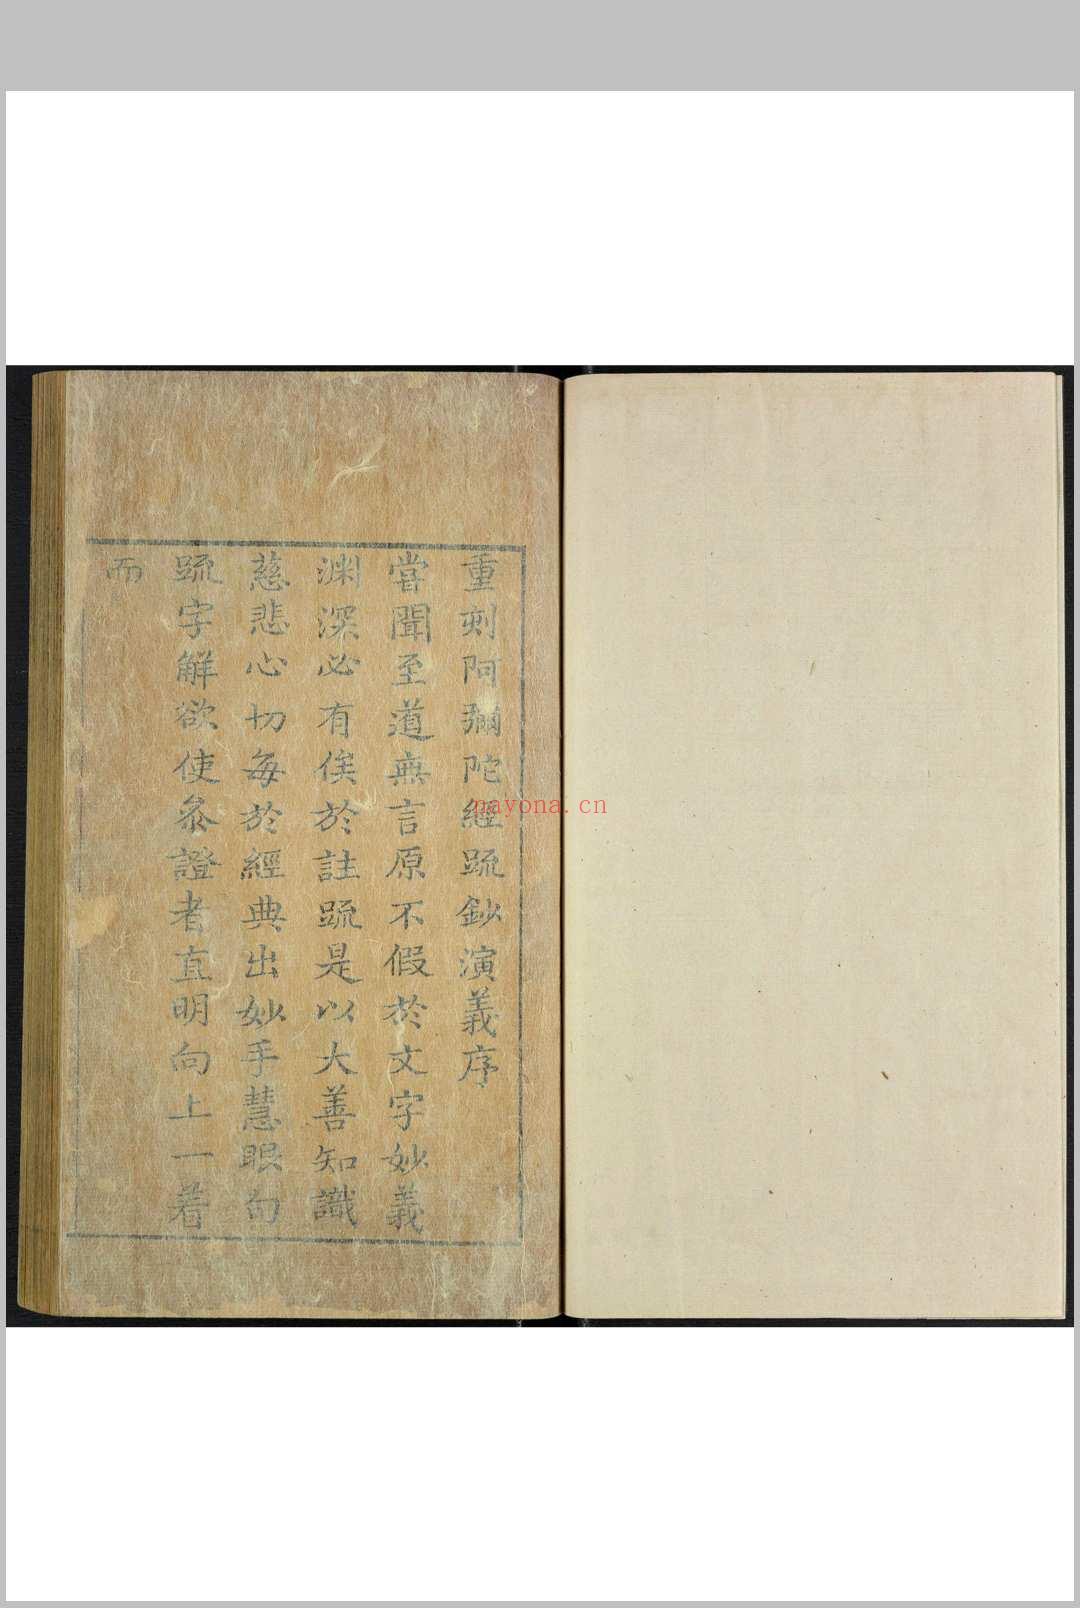 重刻阿彌陀經䟽鈔演義序
甞聞至道無言原不假於文字妙義
渊深必有俟於註䟽是以大善知識
慈悲心切每於經典出妙手慧眼句
䟽字解欲使叅證者直明向上一着
而
nayona.cn